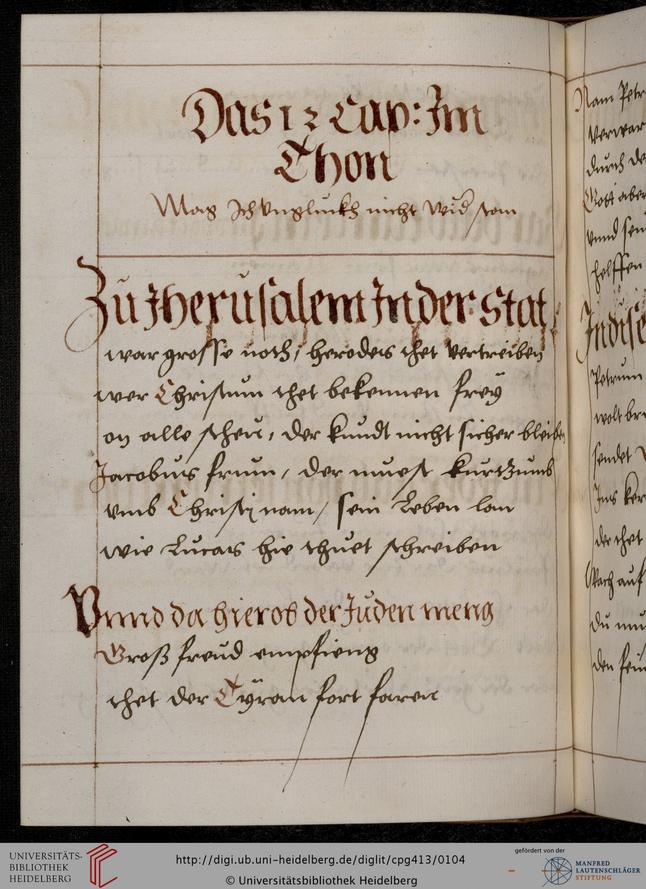 Das 12 Cap: Im
Thon
Mag Ich Unglückh nicht wid stan
Zu Jherusalem In der stat
war grosse noth, herodes thet vertreiben
wer Christum thet bekennen frey
on alle scheü, der kundt nicht sicher bleiben
Jacobus frum, der muest kurtzumb
umb Christj nam, sein Leben lan
wie Lucas hie thuet schreiben
Unnd da hierob der Juden meng
Groß freud empfieng
thet der Tÿran fort faren
Nam Petr
durch de
Gott aber
unnd sein
helffen
In dise
Petrum
wolt br
sendet
Ins ker
der thet
Wach auf
du mu
den fein
UNIVERSITÄTS-
BIBLIOTHEK
HEIDELBERG
http://digi.ub.uni-heidelberg.de/diglit/cpg413/0104
© Universitätsbibliothek Heidelberg
gefördert von der
MANFRED
LAUTENSCHLÄGER
STIFTUNG